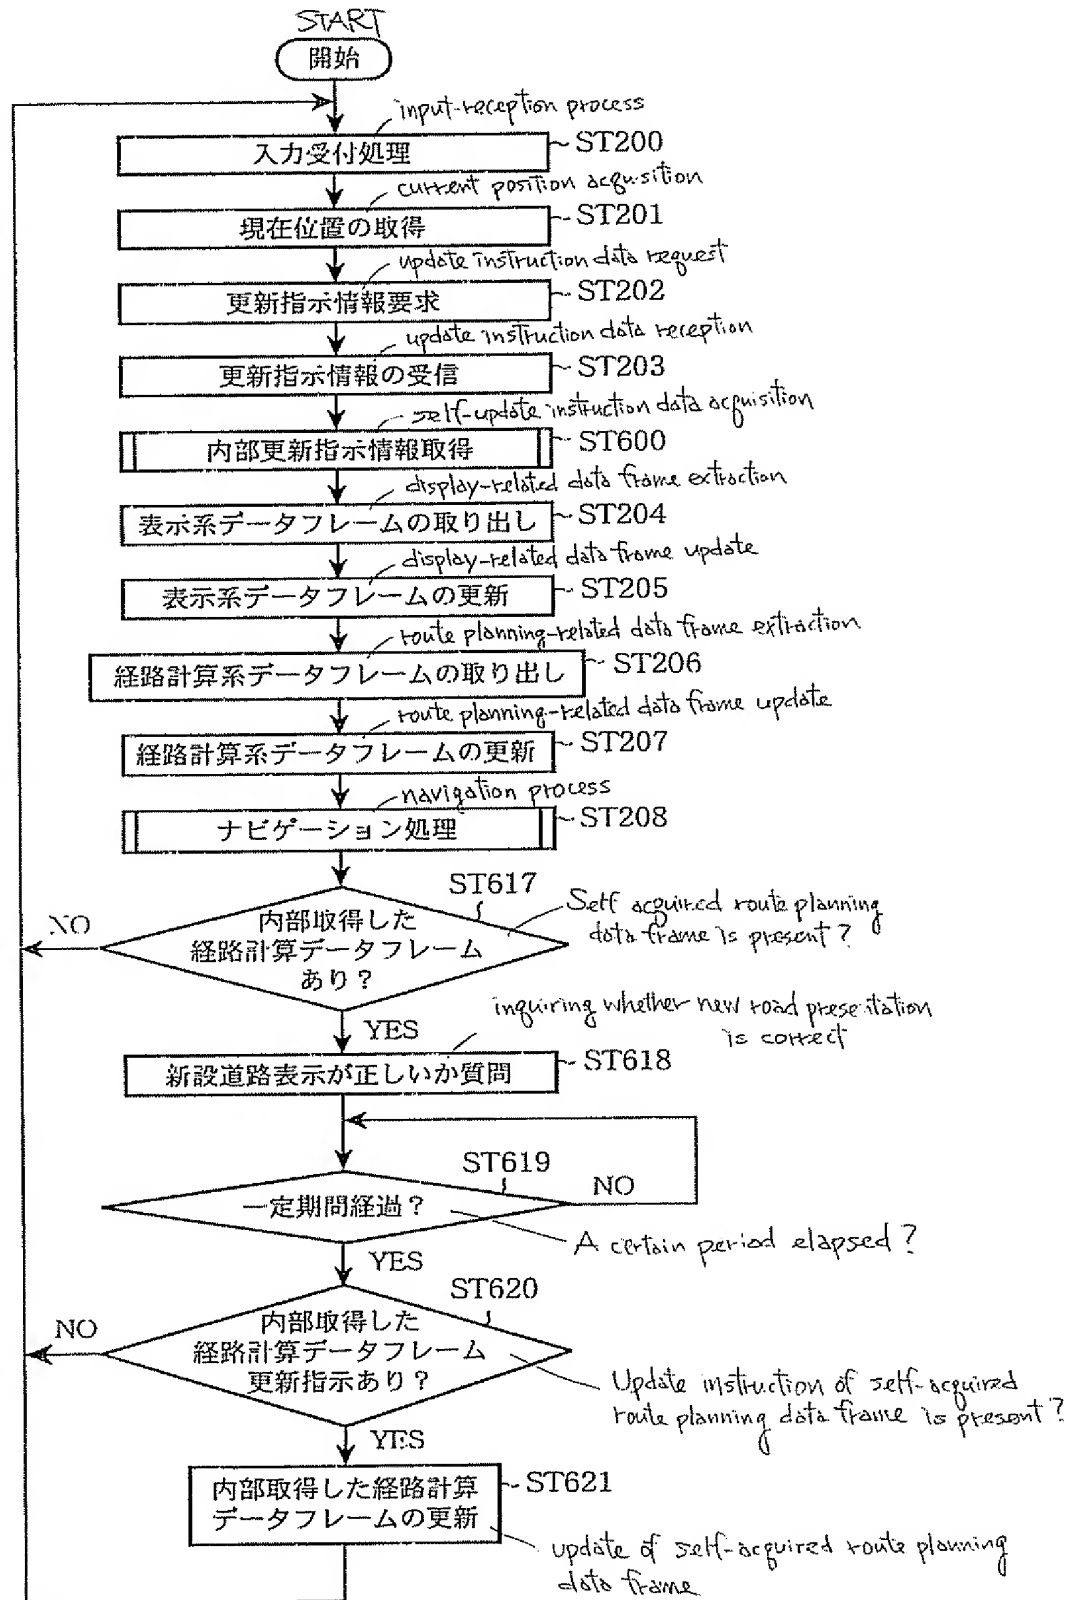 START
開始
input-reception process
入力受付処理
ST200
current position acqusition
現在位置の取得
ST201
update instruction data request
更新指示情報要求
ST202
update instruction data reception
更新指示情報の受信
ST203
self-update instruction data acquisition
内部更新指示情報取得
ST600
display-related data frame extraction
表示系データフレームの取り出し
ST204
display-related data frame update
表示系データフレームの更新
ST205
route planning-related data frame extraction
経路計算系データフレームの取り出し
ST206
route planning-related data frame update
経路計算系データフレームの更新
ST207
navigation process
ナビゲーション処理
ST208
ST617
NO
内部取得した
経路計算データフレーム
あり？
Self acquired route planning
data frame is present?
YES
inquiring whether new road presentation
is correct
新設道路表示が正しいか質問
ST618
ST619
一定期間経過？
NO
A certain period elapsed?
YES
ST620
NO
内部取得した
経路計算データフレーム
更新指示あり？
Update instruction of self-acquired
route planning data frame is present?
YES
内部取得した経路計算
データフレームの更新
ST621
update of self-acquired route planning
data frame